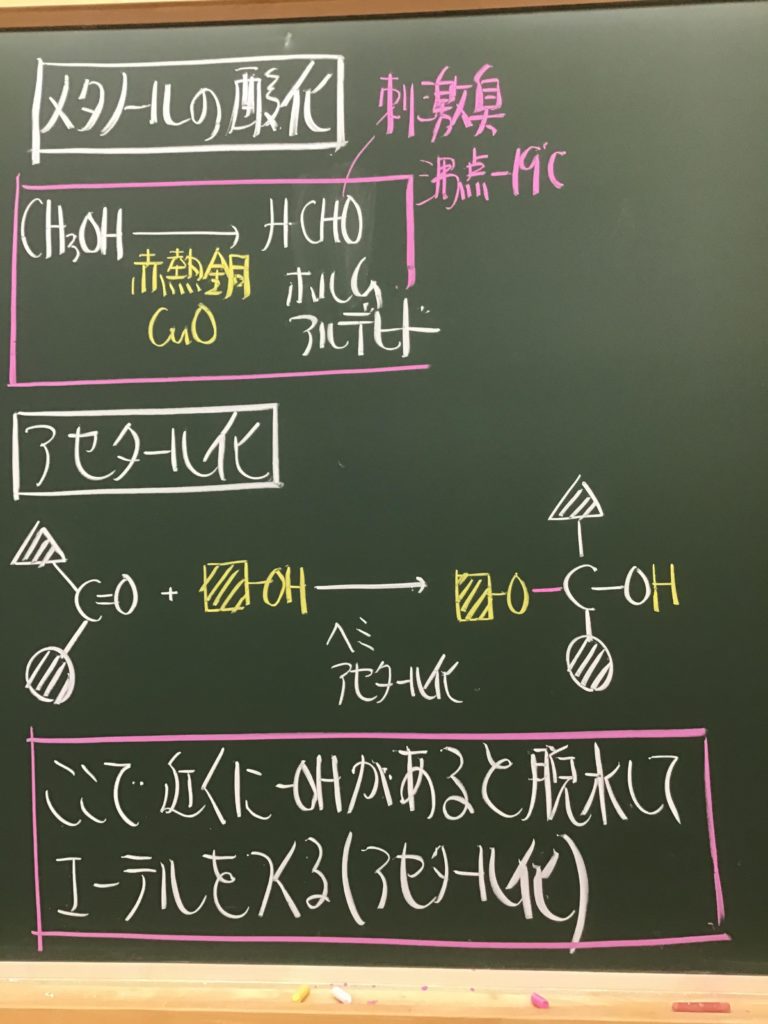 メタノールの酸化
刺激臭
沸点-19℃
CH₃OH → HCHO
赤熱銅
CuO
ホルム
アルデヒド
アセタール化
C=O + -OH → -O-C-OH
ヘミ
アセタール化
ここで近くに-OHがあると脱水して
エーテルをつくる(アセタール化)